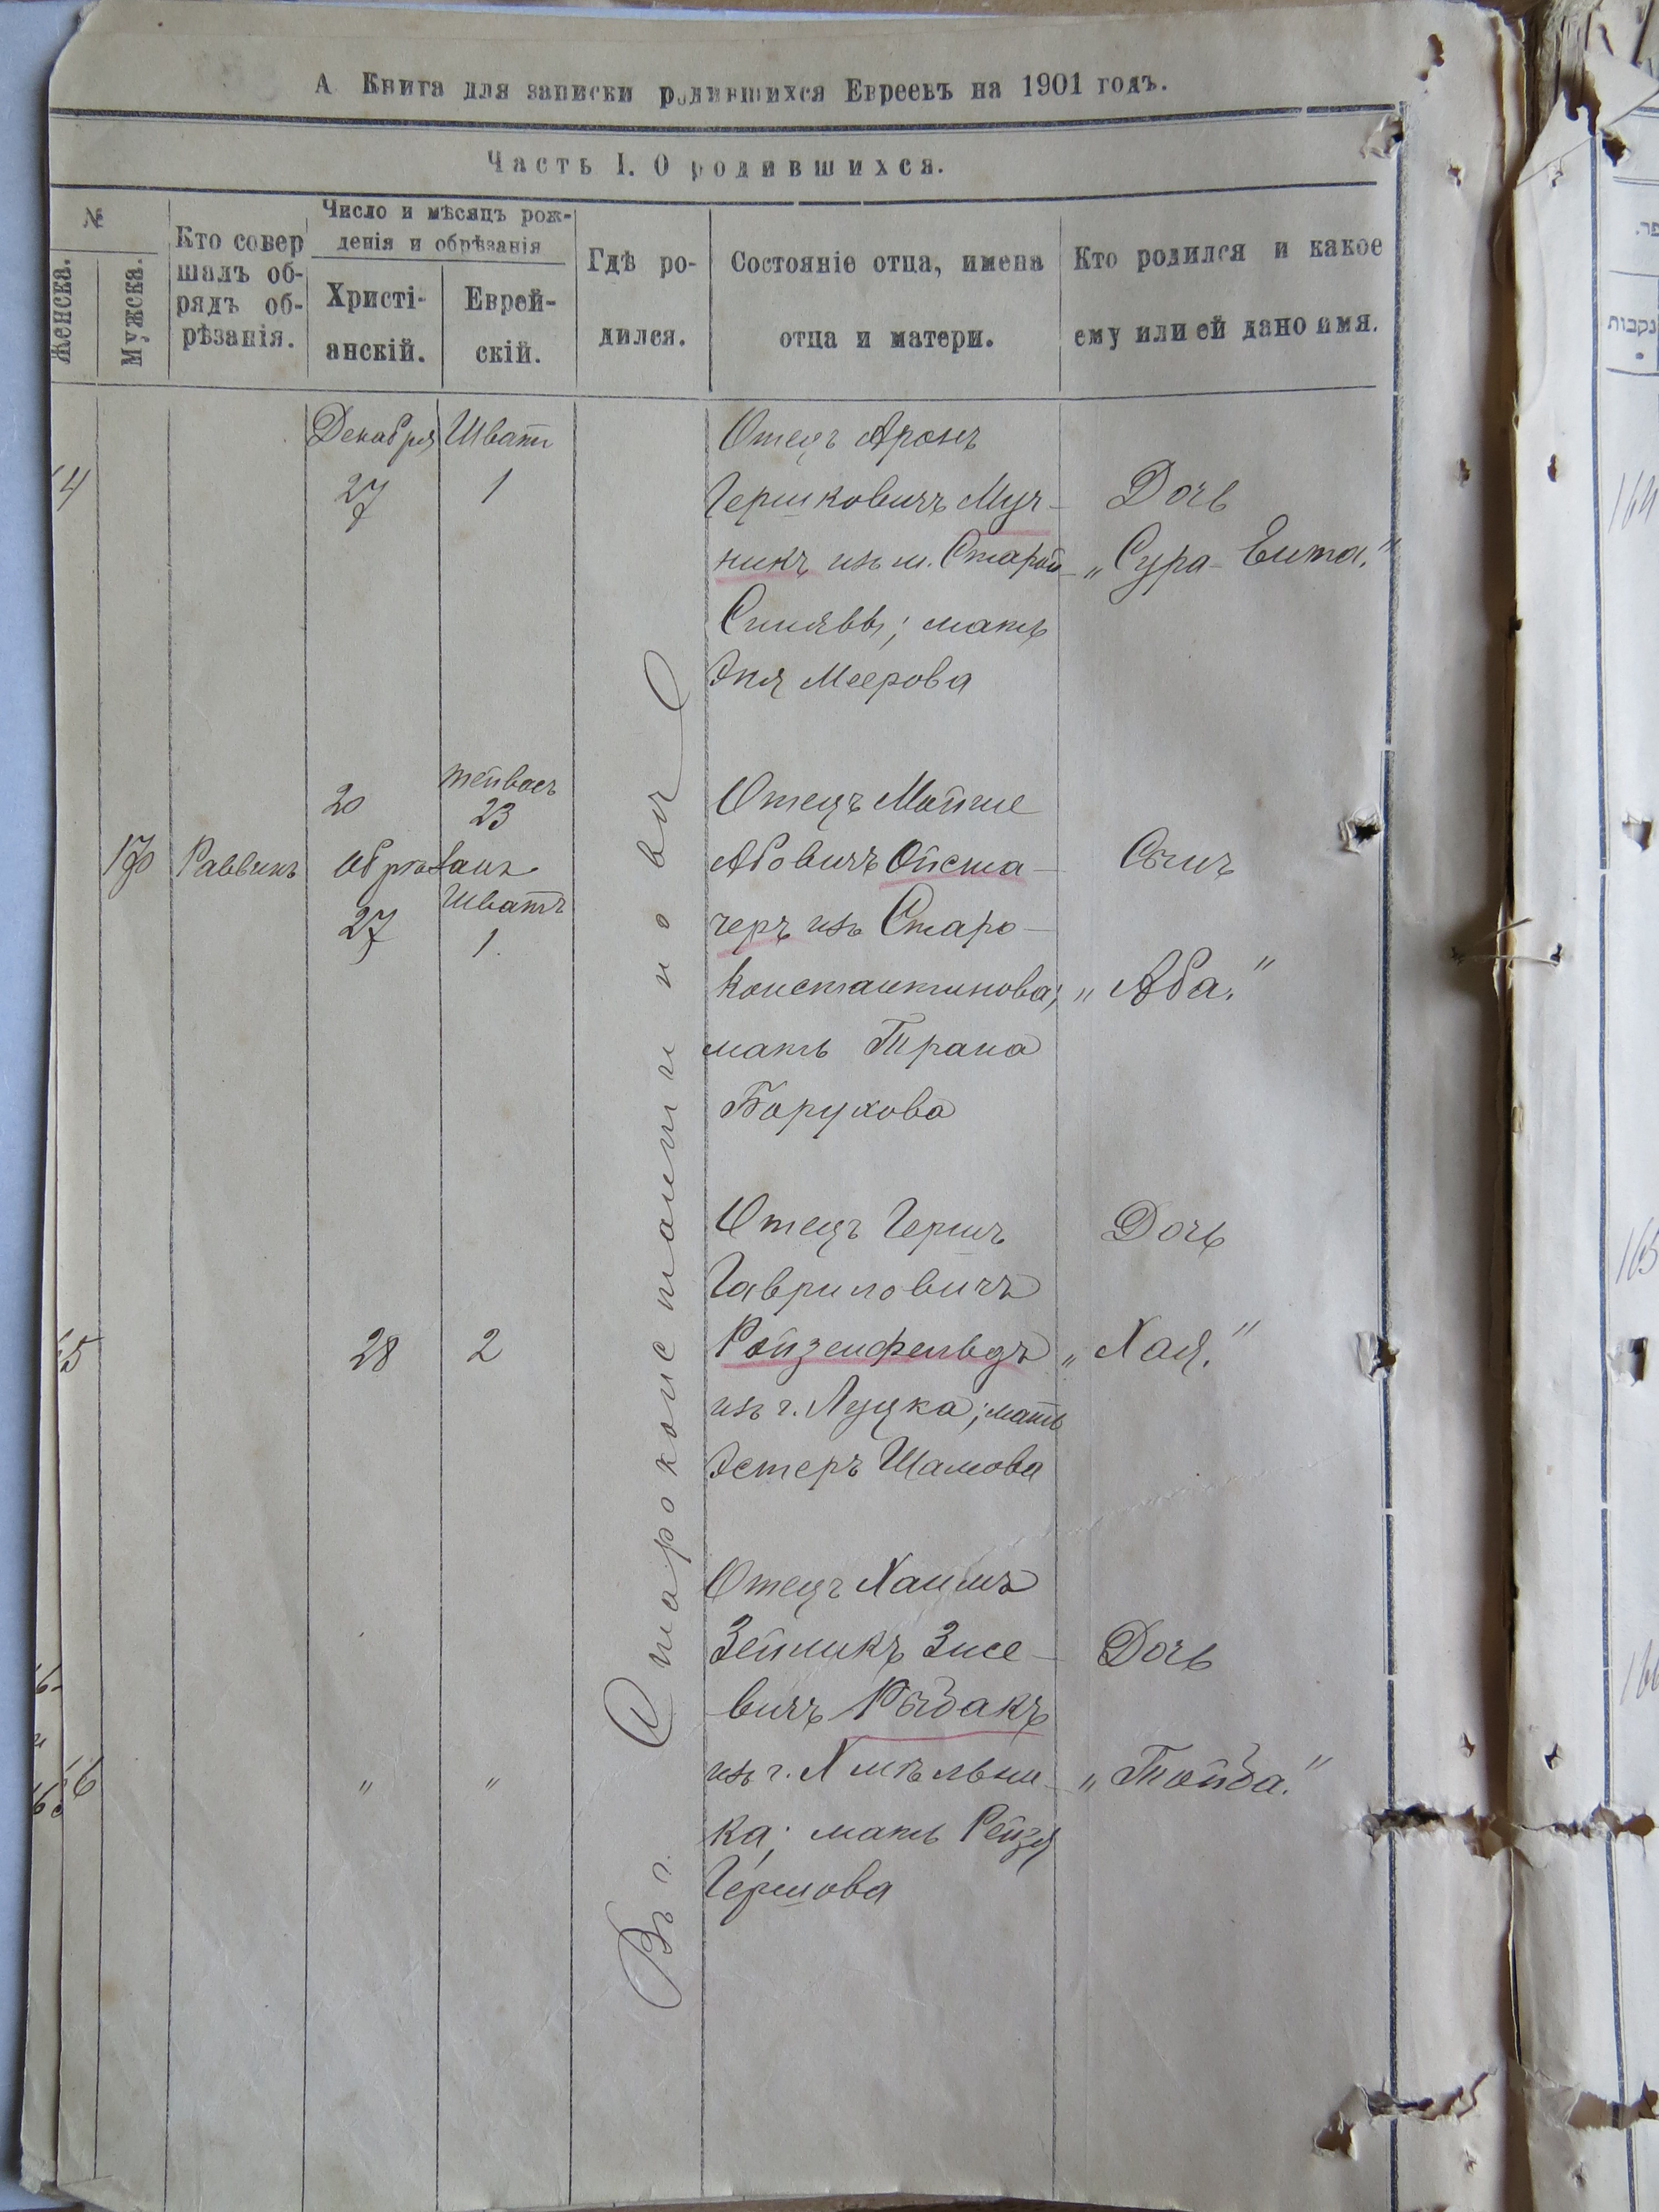 А Книга для записки родившихся Евреевъ на 1901 годъ.
Часть I. О родившихся.
№
Женска.
Мужска.
Кто совер
шалъ об-
рядъ об-
рѣзанія.
Число и мѣсяцъ рож-
денія и обрѣзанія
Христі-
анскій.
Еврей-
скій.
Гдѣ ро-
дился.
Состояніе отца, имена
отца и матери.
Кто родился и какое
ему или ей дано имя.
Въ г. Староконстантиновѣ
Декабря Шватъ
4 27 1
Отецъ Аронъ
Гершковичъ Муч-
никъ изъ м. Старой
Синявы; мать
Эня Меерова
Дочь
„Сура-Ента."
170 Раввинъ
20 Тейвесъ 23
обрѣзанъ
27 Шватъ 1.
Отецъ Мойше
Абовичъ Ойста-
черъ изъ Старо-
константинова;
мать Трана
Борухова
Сынъ
„Аба."
5 28 2
Отецъ Гершъ
Гавриловичъ
Ройзенфельдъ
изъ г. Луцка; мать
Эстеръ Шамова
Дочь
„Хая."
6 " "
Отецъ Хаимъ
Зейликъ Зисе-
вичъ Рыбакъ
изъ г. Хмѣльни-
ка; мать Рейзя
Гершова
Дочь
„Тойба."
נקבות
164
165
166